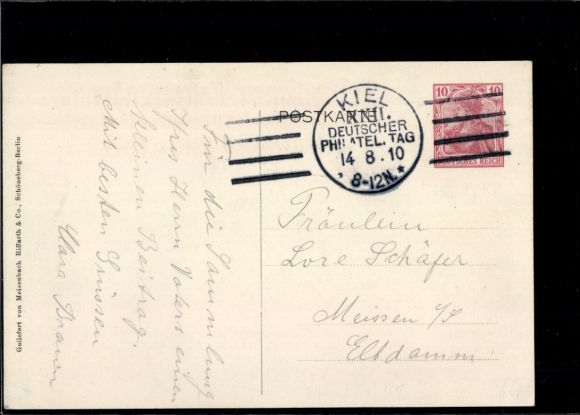 POSTKARTE
KIEL
XXII.
DEUTSCHER
PHILATEL. TAG
14 8.10
* 8-12N. *
10 10
DEUTSCHES REICH
Fräulein
Lore Schäfer
Meissen a/E
Elbdamm
Für die Sammlung
Ihres Herrn Vaters einen
kleinen Beitrag.
Mit besten Grüssen
Clara Braun
Geliefert von Meisenbach Riffarth & Co., Schöneberg-Berlin